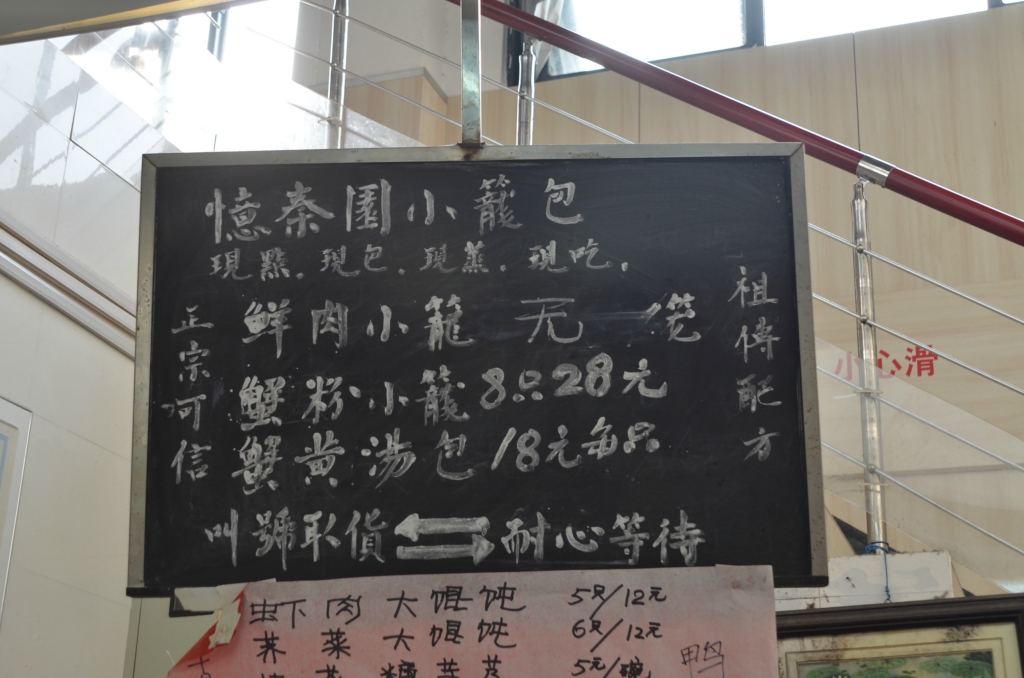 憶秦園小籠包
現點.現包.現蒸.現吃.
正宗可信
鲜肉小籠 元一笼
蟹籽小籠8只28元
蟹黄汤包18元每只
祖傳配方
叫號取貨 耐心等待
小心滑
虫下肉大馄饨 5只/12元
荠菜大馄饨 6只/12元
5元/碗
鸭